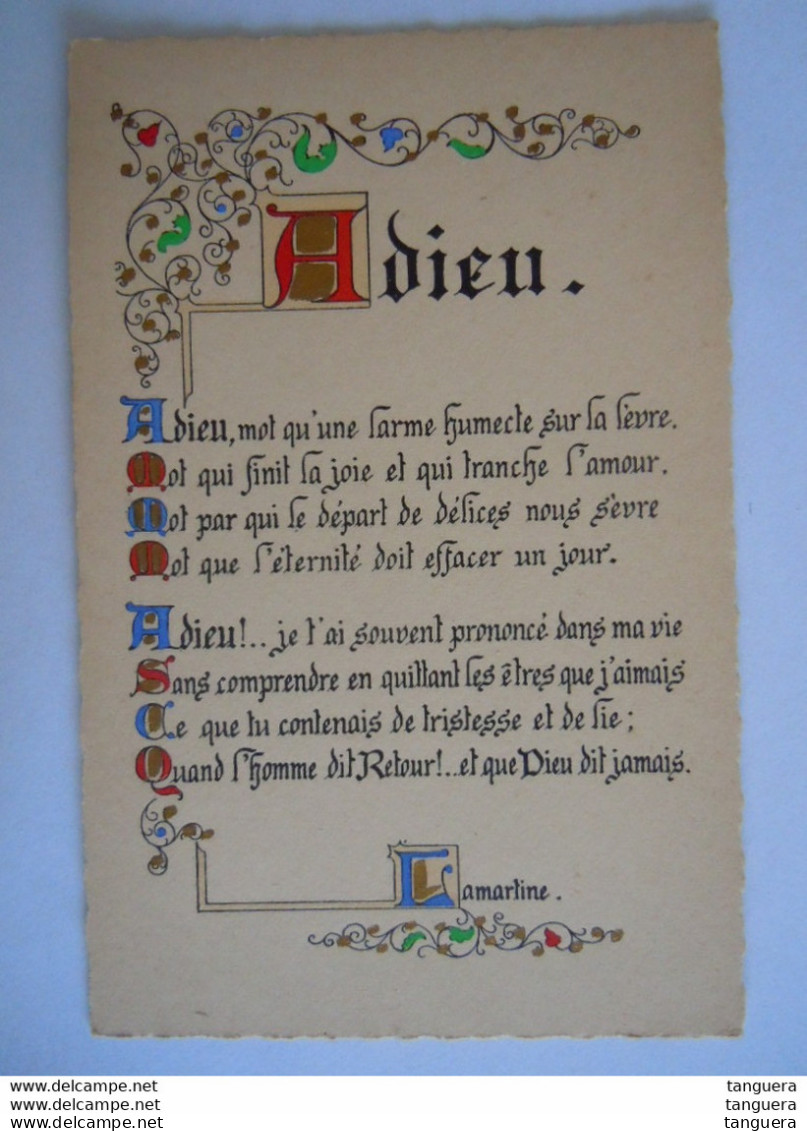 Adieu.
Adieu, mot qu'une larme humecte sur la lèvre.
Mot qui finit la joie et qui tranche l'amour.
Mot par qui le départ de délices nous sèvre
Mot que l'éternité doit effacer un jour.
Adieu!.. je t'ai souvent prononcé dans ma vie
Sans comprendre en quittant les êtres que j'aimais
Ce que tu contenais de tristesse et de lie;
Quand l'homme dit Retour!..et que Dieu dit jamais.
Lamartine.
www.delcampe.net tanguera
www.delcampe.net tanguera
www.delcampe.net tanguera